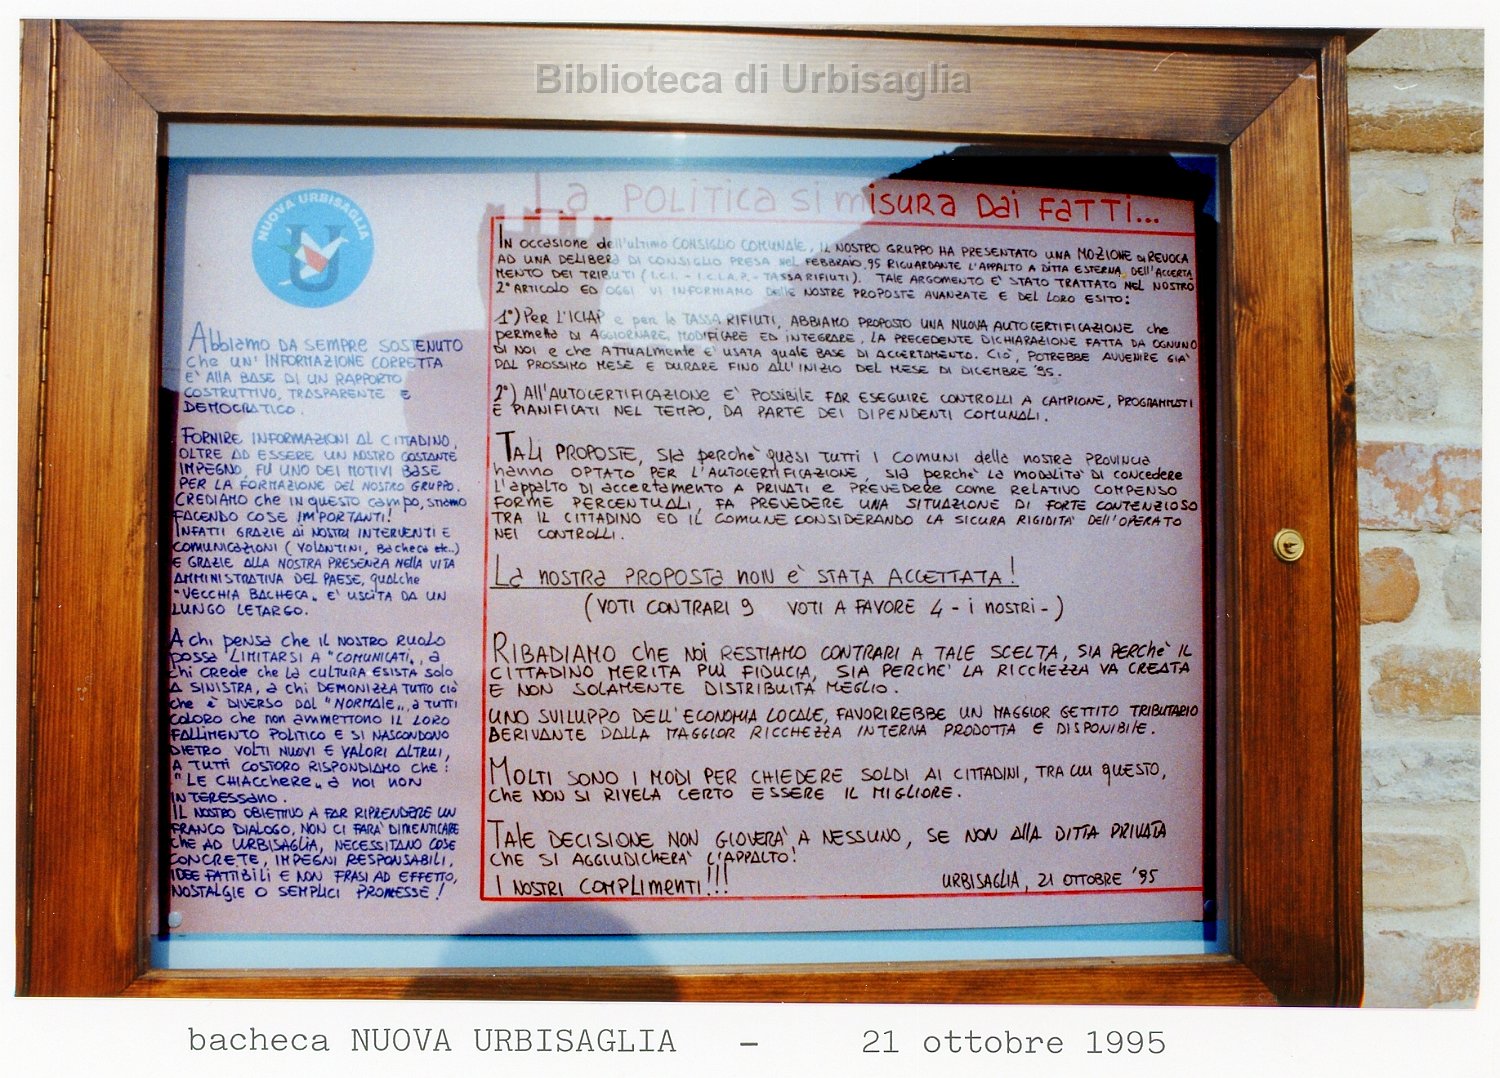 Biblioteca di Urbisaglia
NUOVA URBISAGLIA
U
Abbiamo DA SEMPRE SOSTENUTO
che UN' INFORMAZIONE CORRETTA
E' ALLA BASE DI UN RAPPORTO
COSTRUTTIVO, TRASPARENTE E
DEMOCRATICO.
FORNIRE INFORMAZIONI AL CITTADINO,
OLTRE AD ESSERE UN NOSTRO COSTANTE
IMPEGNO, FU UNO DEI MOTIVI BASE
PER LA FORMAZIONE DEL NOSTRO GRUPPO.
CREDIAMO che IN questo campo, stiamo
FACENDO COSE IMPORTANTI!
INFATTI GRAZIE AI NOSTRI INTERVENTI E
COMUNICAZIONI (VOLANTINI, Bacheca etc..)
E GRAZIE ALLA NOSTRA PRESENZA NELLA VITA
AMMINISTRATIVA DEL PAESE, qualche
"VECCHIA BACHECA" E' USCITA DA UN
LUNGO LETARGO.
A chi pensa che IL NOSTRO RUOLO
possa LIMITARSI A "COMUNICATI", a
chi crede che LA CULTURA ESISTA SOLO
A SINISTRA, a chi DEMONIZZA TUTTO CIO'
che è DIVERSO DAL "NORMALE", a TUTTI
COLORO che non ammettono IL LORO
FALLIMENTO POLITICO E SI NASCONDONO
DIETRO VOLTI NUOVI E VALORI ALTRUI,
A TUTTI COSTORO RISPONDIAMO che:
"LE CHIACCHERE" a noi NON
INTERESSANO.
IL NOSTRO OBIETTIVO A FAR RIPRENDERE UN
FRANCO DIALOGO, NON CI FARA' DIMENTICARE
che AD URBISAGLIA, NECESSITANO COSE
CONCRETE, IMPEGNI RESPONSABILI,
IDEE FATTIBILI E NON FRASI AD EFFETTO,
NOSTALGIE O SEMPLICI PROMESSE!
La POLITICA si misura Dai FATTI...
IN occasione dell'ultimo CONSIGLIO COMUNALE, IL NOSTRO GRUPPO HA PRESENTATO UNA MOZIONE DI REVOCA
AD UNA DELIBERA DI CONSIGLIO PRESA NEL FEBBRAIO 95 RIGUARDANTE L'APPALTO A DITTA ESTERNA, DELL'ACCERTA
MENTO DEI TRIBUTI (I.C.I. - I.C.I.A.P. - TASSA RIFIUTI). TALE ARGOMENTO E' STATO TRATTATO NEL NOSTRO
2° ARTICOLO ED OGGI VI INFORMIAMO delle NOSTRE PROPOSTE AVANZATE E DEL LORO ESITO:
1°) Per L'ICIAP e per la TASSA RIFIUTI, ABBIAMO PROPOSTO UNA NUOVA AUTOCERTIFICAZIONE che
permetta DI AGGIORNARE, MODIFICARE ED INTEGRARE, LA PRECEDENTE DICHIARAZIONE FATTA DA OGNUNO
DI NOI e che ATTUALMENTE E' USATA quale BASE DI ACCERTAMENTO. CIO', POTREBBE AVVENIRE GIA'
DAL PROSSIMO MESE E DURARE FINO ALL'INIZIO DEL MESE DI DICEMBRE '95.
2°) All'AUTOCERTIFICAZIONE E' POSSIBILE FAR ESEGUIRE CONTROLLI A CAMPIONE, PROGRAMMATI
E PIANIFICATI NEL TEMPO, DA PARTE DEI DIPENDENTI COMUNALI.
TALI PROPOSTE, sia perche' quasi TUTTI I COMUNI della nostra PROVINCIA
hanno OPTATO PER L'AUTOCERTIFICAZIONE, sia perche' La modalita' DI CONCEDERE
L'appalto DI accertamento A PRIVATI e PREVEDERE come RELATIVO COMPENSO
FORME PERCENTUALI, FA PREVEDERE UNA SITUAZIONE DI FORTE CONTENZIOSO
TRA IL CITTADINO ED IL COMUNE CONSIDERANDO LA SICURA RIGIDITA' DELL'OPERATO
NEI CONTROLLI.
La nostra PROPOSTA NON E' STATA ACCETTATA!
(VOTI CONTRARI 9 VOTI A FAVORE 4 - i nostri -)
RIBADIAMO che NOI RESTIAMO CONTRARI A TALE SCELTA, SIA PERCHE' IL
CITTADINO MERITA PIU' FIDUCIA, SIA PERCHE' LA RICCHEZZA VA CREATA
E NON SOLAMENTE DISTRIBUITA MEGLIO.
UNO SVILUPPO DELL'ECONOMIA LOCALE, FAVORIREBBE UN MAGGIOR GETTITO TRIBUTARIO
DERIVANTE DALLA MAGGIOR RICCHEZZA INTERNA PRODOTTA E DISPONIBILE.
MOLTI SONO I MODI PER CHIEDERE SOLDI AI CITTADINI, TRA CUI QUESTO,
CHE NON SI RIVELA CERTO ESSERE IL MIGLIORE.
TALE DECISIONE NON GIOVERA' A NESSUNO, SE NON ALLA DITTA PRIVATA
CHE SI AGGIUDICHERA' L'APPALTO!
I NOSTRI COMPLIMENTI!!! URBISAGLIA, 21 OTTOBRE '95
bacheca NUOVA URBISAGLIA - 21 ottobre 1995